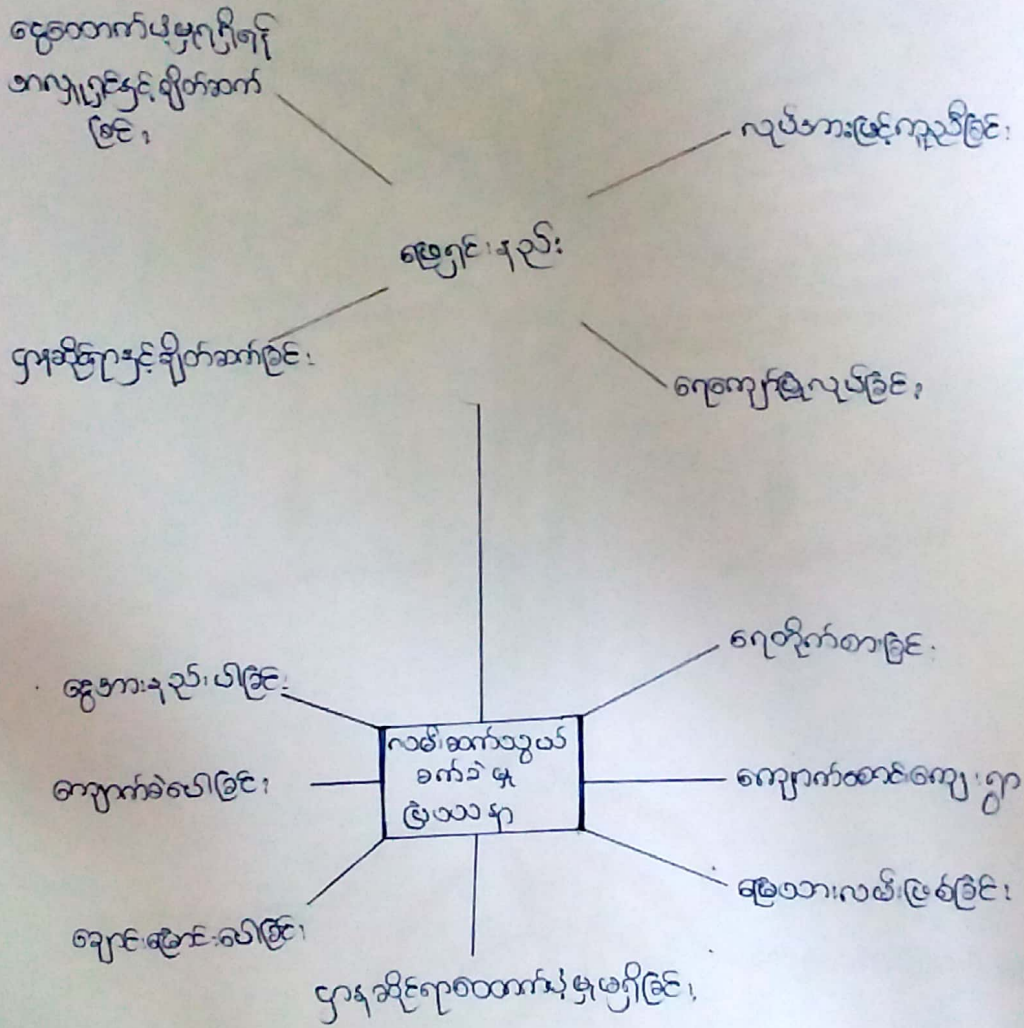 ငွေထောက်ပံ့မှုရရှိရန်
အလှူရှင်နှင့်ချိတ်ဆက်
ခြင်း
လုပ်အားဖြင့်ကူညီခြင်း
ဖြေရှင်းနည်း
ဌာနဆိုင်ရာနှင့်ချိတ်ဆက်ခြင်း
ရေကျော်ပြုလုပ်ခြင်း
ရေတိုက်စားခြင်း
ငွေအားနည်းပါးခြင်း
လမ်းဆက်သွယ်
ခက်ခဲမှု
ပြဿနာ
ကျောက်ခဲပေါခြင်း
ကျောက်ဆောင်ကျေးရွာ
မြေသားလမ်းဖြစ်ခြင်း
ချောင်းမြောင်းပေါခြင်း
ဌာနဆိုင်ရာထောက်ပံ့မှုမရှိခြင်း